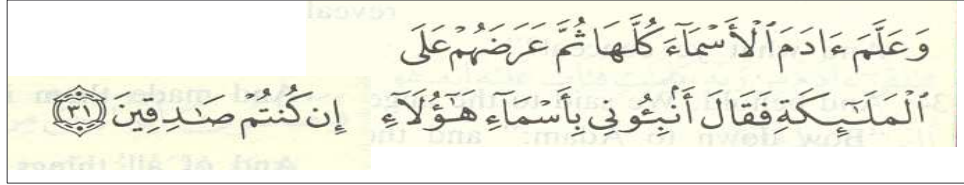 وَعَلَّمَ ءَادَمَ ٱلْأَسْمَآءَ كُلَّهَا ثُمَّ عَرَضَهُمْ عَلَى
ٱلْمَلَـٰٓئِكَةِ فَقَالَ أَنۢبِـُٔونِى بِأَسْمَآءِ هَـٰٓؤُلَآءِ إِن كُنتُمْ صَـٰدِقِينَ ٣١